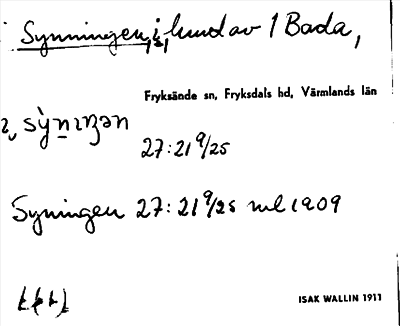 Synningen, i, hund av 1 Bada,
Fryksände sn, Fryksdals hd, Värmlands län
sỳnıŋən
27:21 9/25
Syningen 27:21 9/25 ml 1909
ISAK WALLIN 1911